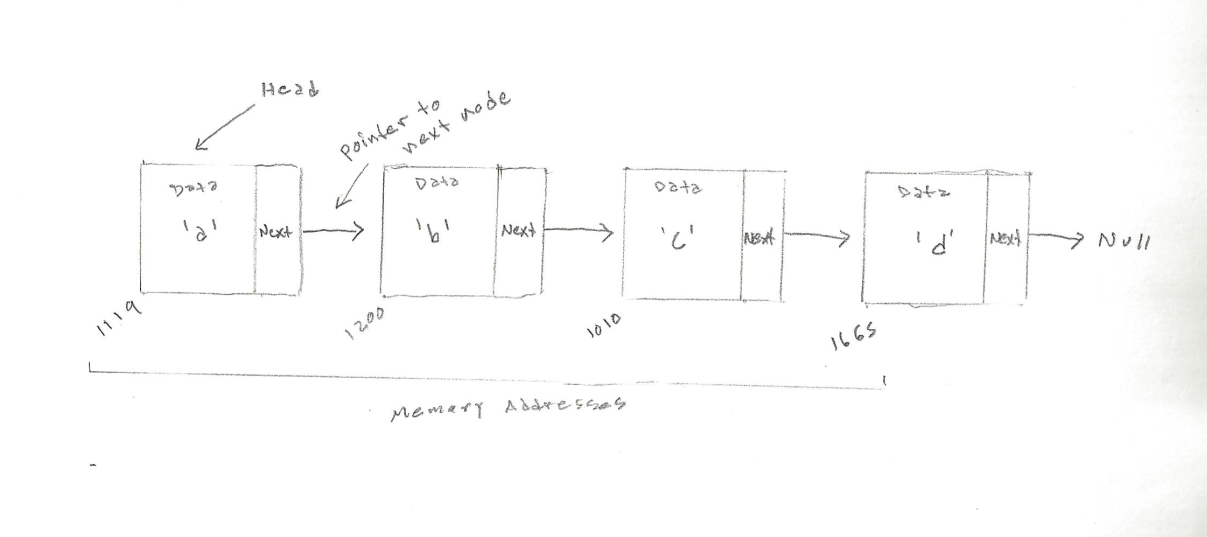 Head
pointer to
next node
Data
'a'
Next
Data
'b'
Next
Data
'c'
Next
Data
'd'
Next
Null
1119
1200
1010
1665
Memory Addresses